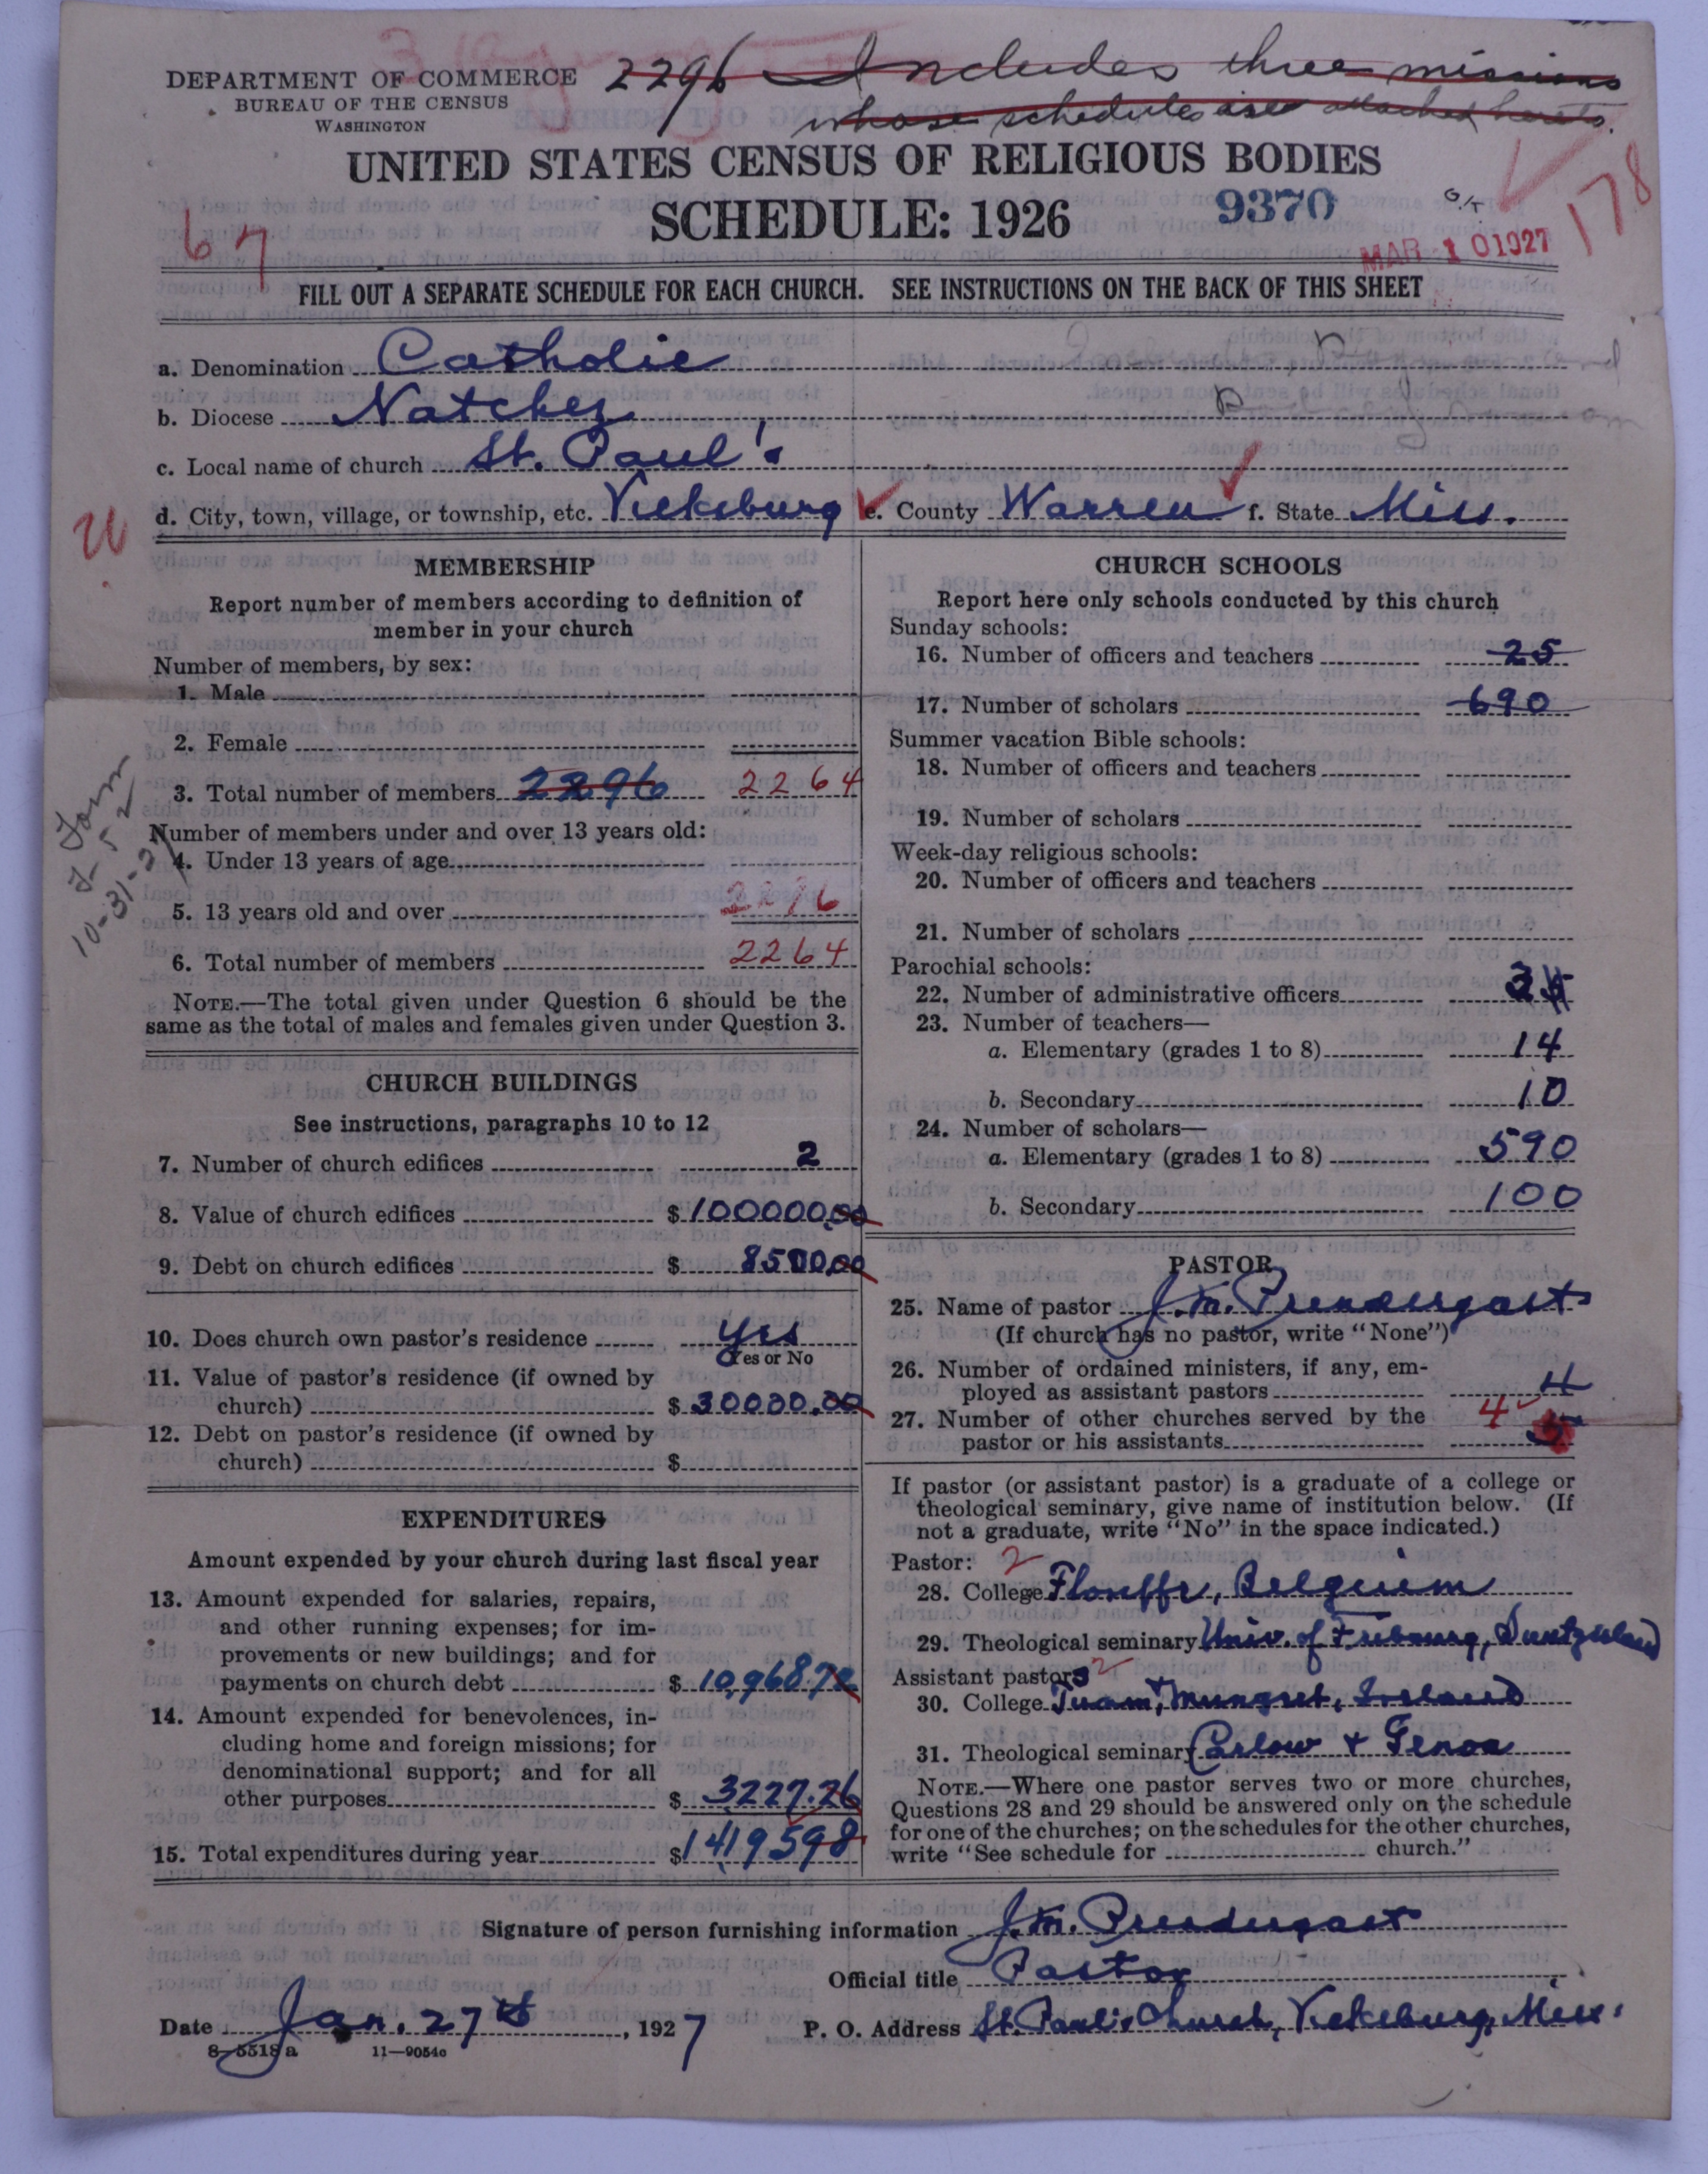 DEPARTMENT OF COMMERCE
BUREAU OF THE CENSUS
WASHINGTON
2296 Includes three missions
whose schedules are attached hereto.
UNITED STATES CENSUS OF RELIGIOUS BODIES
SCHEDULE: 1926
9370
O.K.
178
67
MAR 10 1927
FILL OUT A SEPARATE SCHEDULE FOR EACH CHURCH. SEE INSTRUCTIONS ON THE BACK OF THIS SHEET
a. Denomination Catholic
b. Diocese Natchez
c. Local name of church St. Paul's
d. City, town, village, or township, etc. Vicksburg e. County Warren f. State Miss.
MEMBERSHIP
Report number of members according to definition of
member in your church
Number of members, by sex:
1. Male
2. Female
3. Total number of members 2296 2264
Number of members under and over 13 years old:
4. Under 13 years of age
5. 13 years old and over
6. Total number of members 2264
NOTE.—The total given under Question 6 should be the
same as the total of males and females given under Question 3.
10-31-27
CHURCH BUILDINGS
See instructions, paragraphs 10 to 12
7. Number of church edifices 2
8. Value of church edifices $ 100000.00
9. Debt on church edifices $ 8500.00
10. Does church own pastor's residence yes
Yes or No
11. Value of pastor's residence (if owned by
church) $ 30000.00
12. Debt on pastor's residence (if owned by
church) $
EXPENDITURES
Amount expended by your church during last fiscal year
13. Amount expended for salaries, repairs,
and other running expenses; for im-
provements or new buildings; and for
payments on church debt $ 10,968.72
14. Amount expended for benevolences, in-
cluding home and foreign missions; for
denominational support; and for all
other purposes $ 3227.26
15. Total expenditures during year $ 14195 98
CHURCH SCHOOLS
Report here only schools conducted by this church
Sunday schools:
16. Number of officers and teachers 25
17. Number of scholars 690
Summer vacation Bible schools:
18. Number of officers and teachers
19. Number of scholars
Week-day religious schools:
20. Number of officers and teachers
21. Number of scholars
Parochial schools:
22. Number of administrative officers
23. Number of teachers—
a. Elementary (grades 1 to 8) 14
b. Secondary 10
24. Number of scholars—
a. Elementary (grades 1 to 8) 590
b. Secondary 100
PASTOR
25. Name of pastor J. M. Prendergast
(If church has no pastor, write "None")
26. Number of ordained ministers, if any, em-
ployed as assistant pastors 4
27. Number of other churches served by the 4
pastor or his assistants
If pastor (or assistant pastor) is a graduate of a college or
theological seminary, give name of institution below. (If
not a graduate, write "No" in the space indicated.)
Pastor: 2
28. College Floreffe, Belguim
29. Theological seminary Univ. of Fribourg, Switzerland
Assistant pastors 2
30. College Tuam, + Mungret, Ireland
31. Theological seminary Carlow + Genoa
NOTE.—Where one pastor serves two or more churches,
Questions 28 and 29 should be answered only on the schedule
for one of the churches; on the schedules for the other churches,
write "See schedule for church."
Signature of person furnishing information J. M. Prendergast
Official title Pastor
Date Jan. 27th, 1927 P. O. Address St. Paul's Church, Vicksburg, Miss.
8—5518a 11—9054c